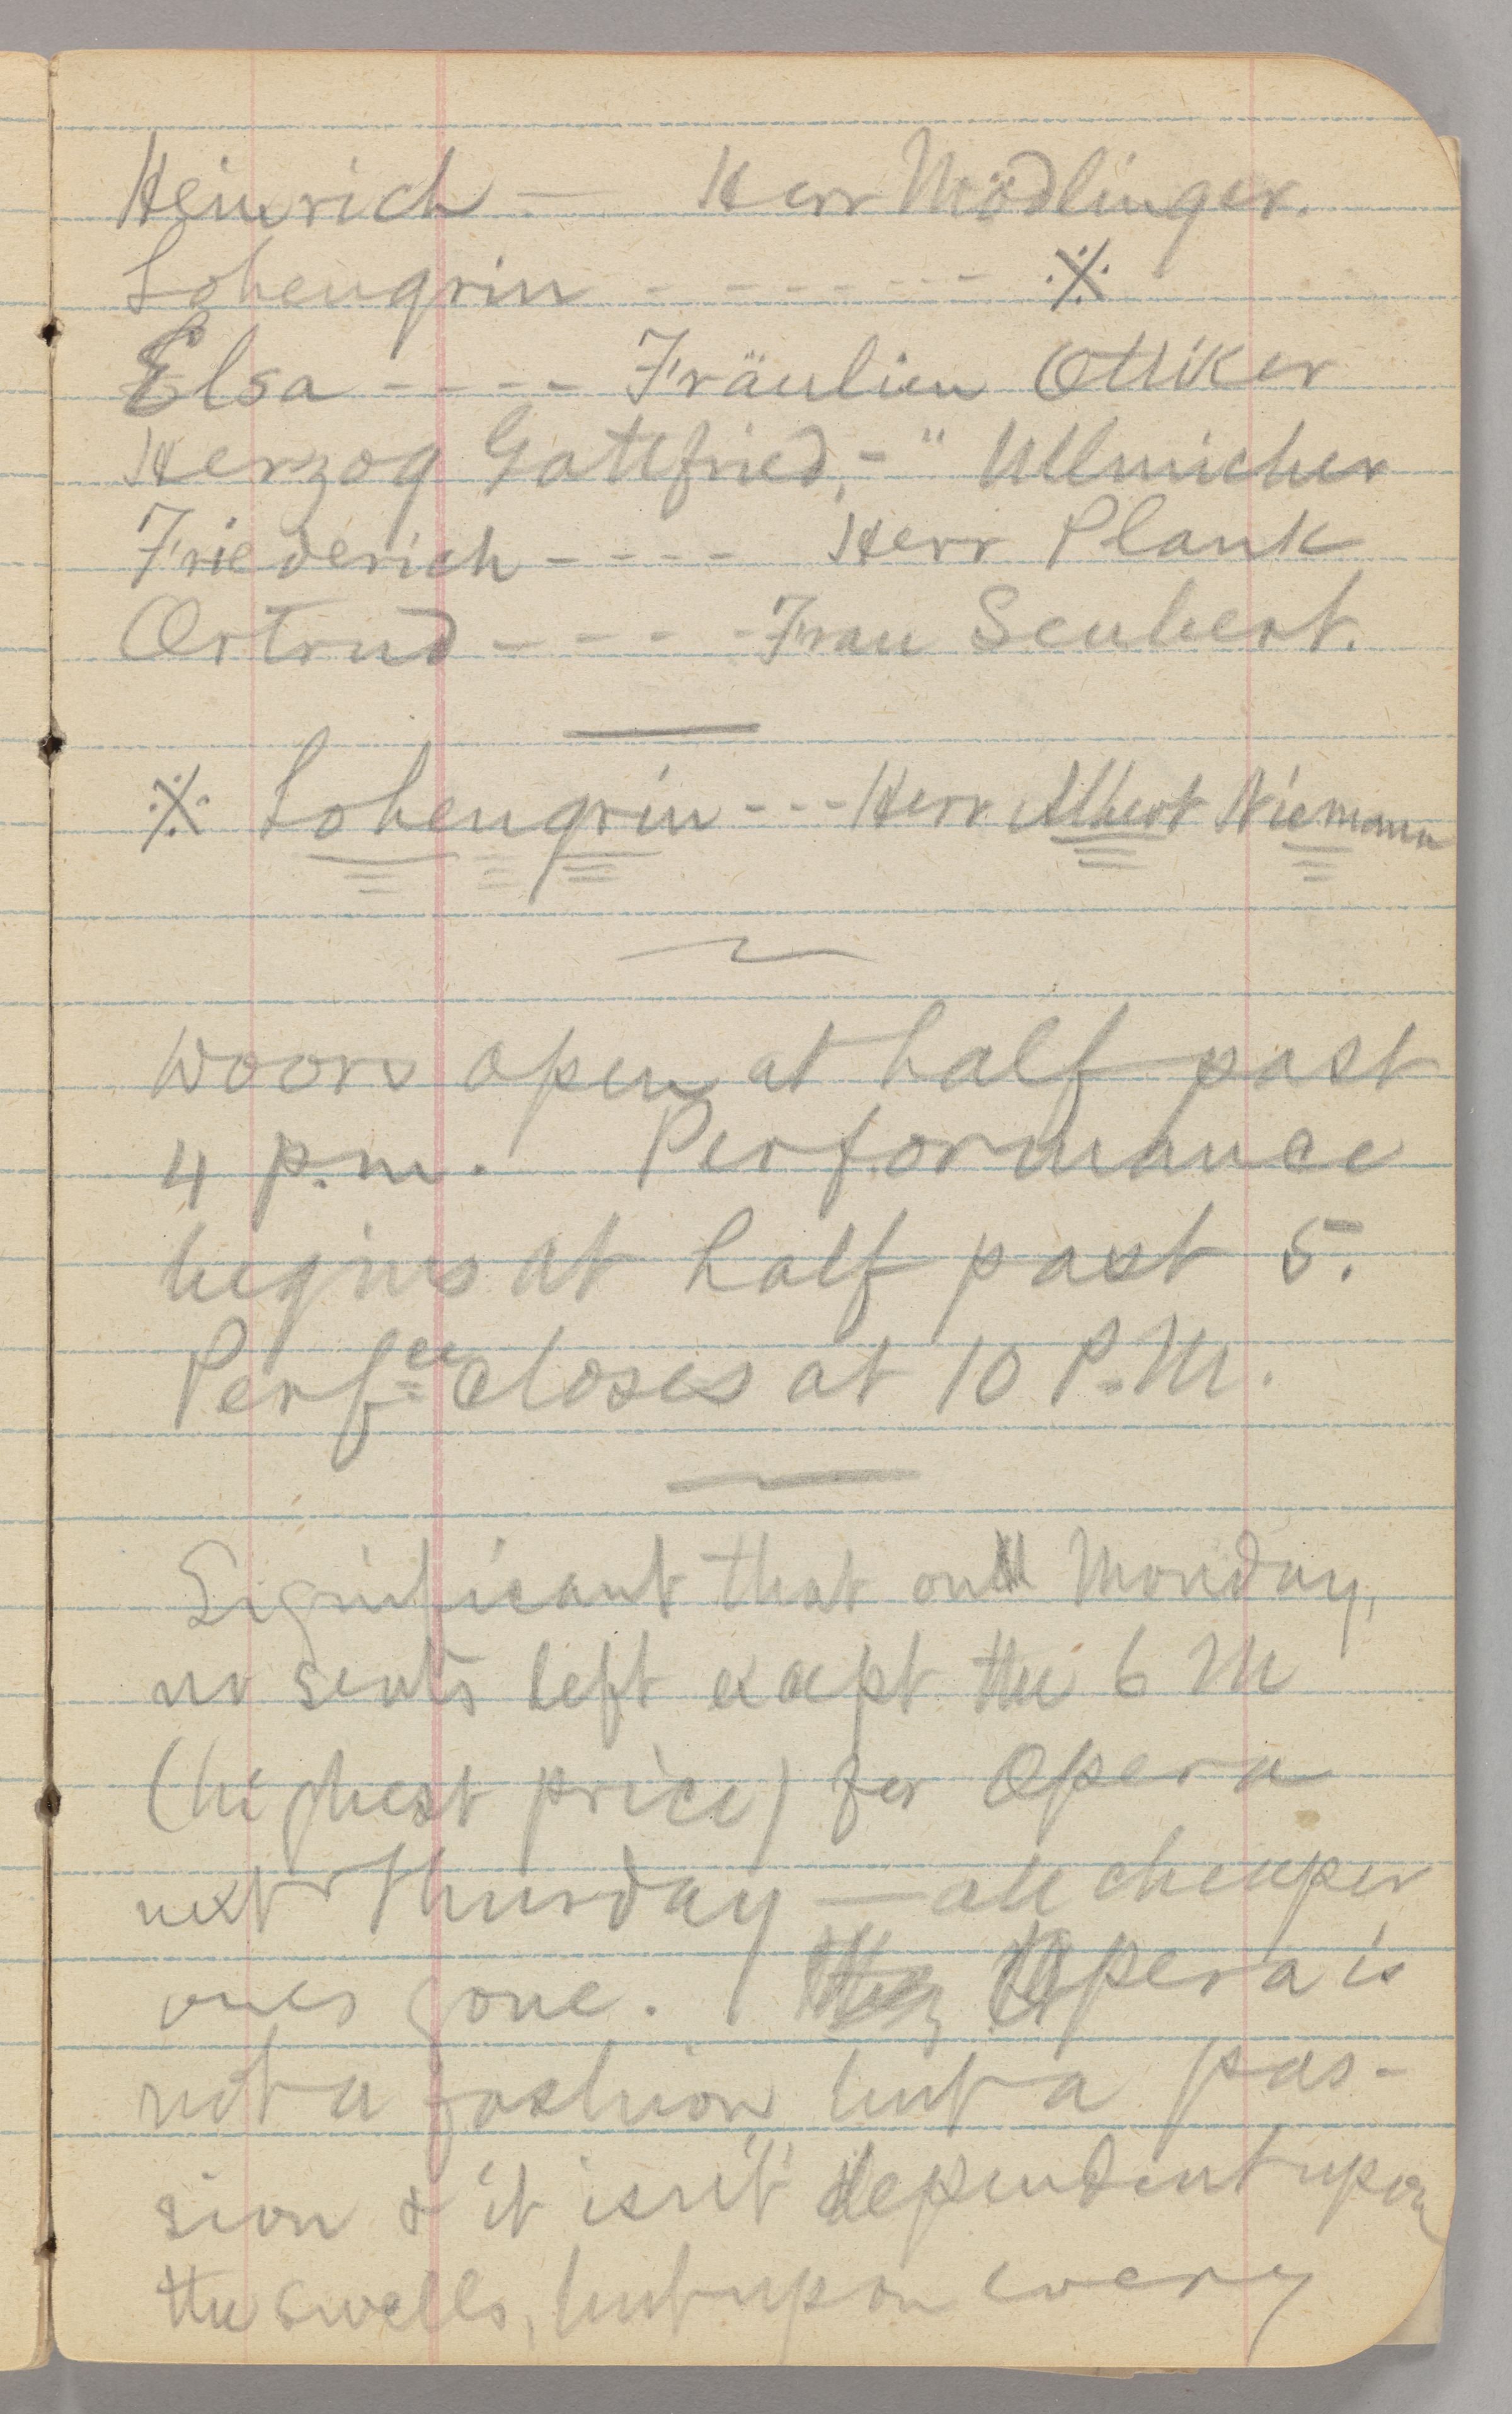 Heinrich — Herr Mödlinger.
Lohengrin - - - - - - - - ※
Elsa - - - - Fräulien Ottiker
Herzog Gottfried, - " Ullmicher
Friederich - - - - Herr Plank
Ortrud - - - - Frau Seubert.
※ Lohengrin - - - Herr Albert Niemann
Doors open at half past
4 p.m. Performance
begins at half past 5.
Perfce closes at 10 P.M.
Significant that on Monday,
no seats left except the 6 M
(highest price) for Opera
next Thursday — all cheaper
ones gone. Opera is
not a fashion but a pas-
sion & it isn't dependent upon
the swells, but upon every